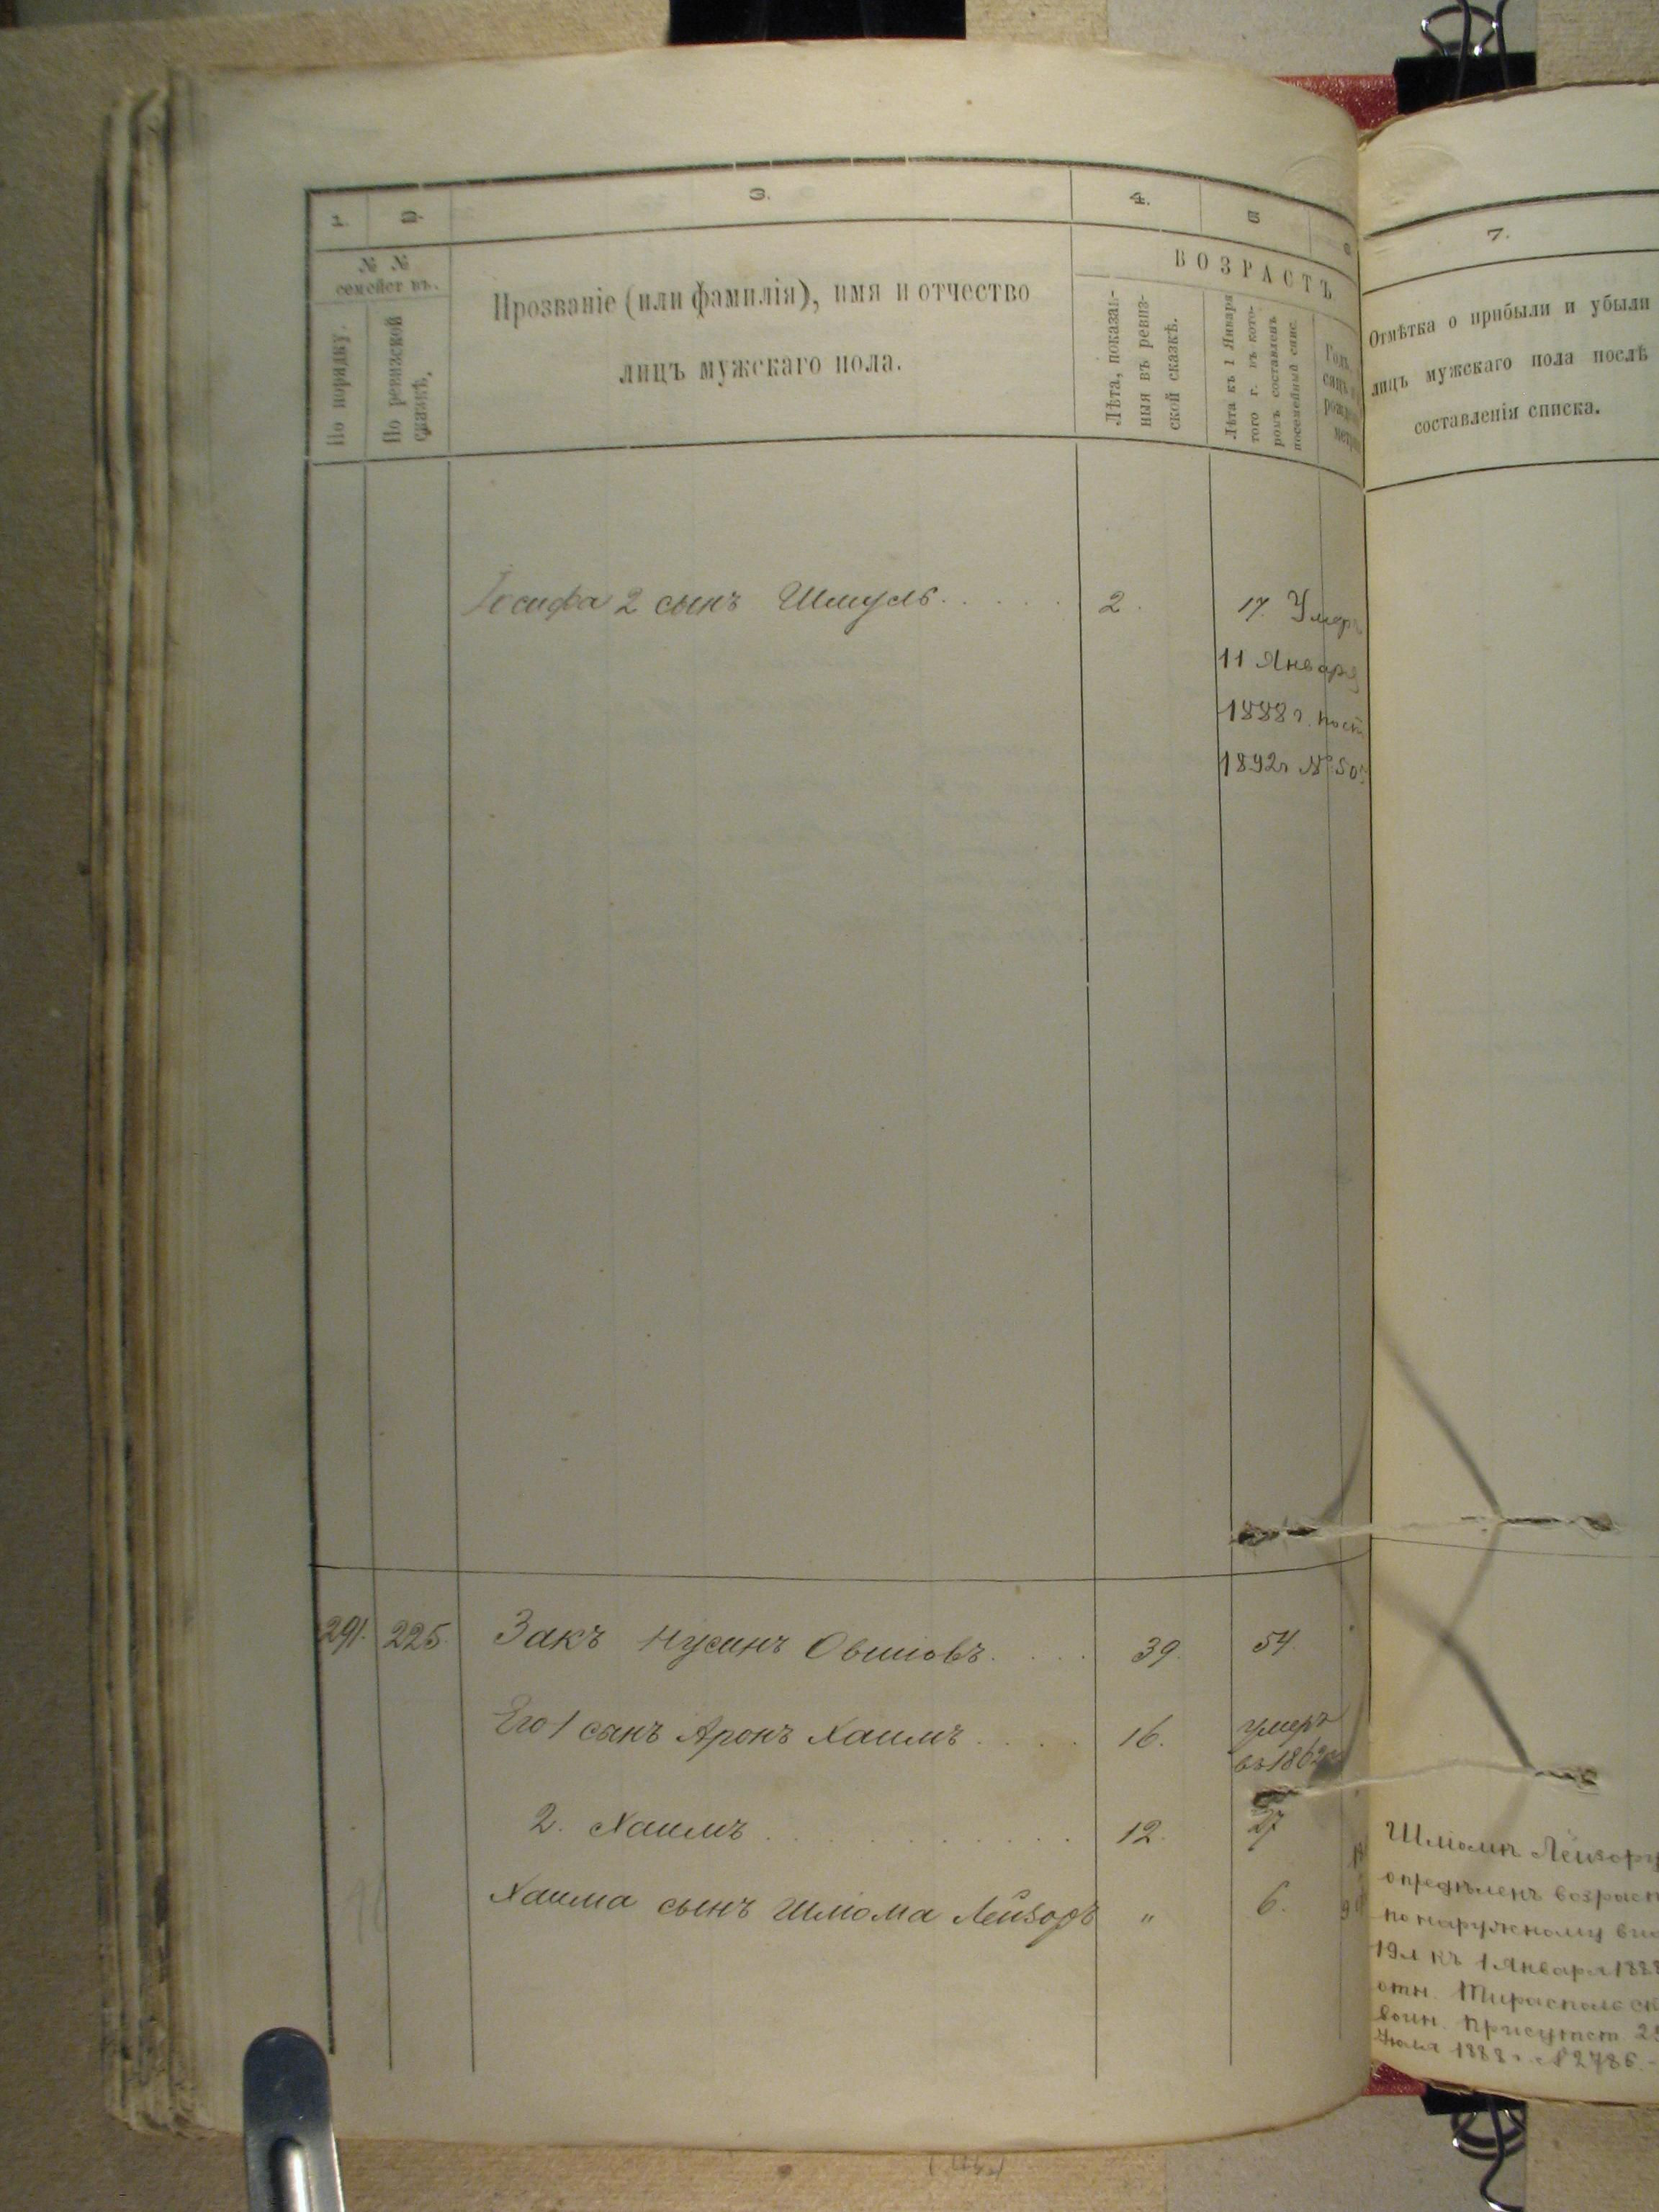 1. 2. 3. 4. 5 6 7.
№ №
семействъ.
По порядку.
По ревизской
сказкѣ.
Прозваніе (или фамилія), имя и отчество
лицъ мужскаго пола.
ВОЗРАСТЪ
Лѣта, показан-
ныя въ ревиз-
ской сказкѣ.
Лѣта къ 1 Января
того г. въ кото-
ромъ составленъ
посемейный спис.
Годъ,
Отмѣтка о прибыли и убыли
лицъ мужскаго пола послѣ
составленія списка.
Іосифа 2 сынъ Шмуль . . . . . 2. 17. Умеръ
11 Января
1888 г. пост
1892г №50
291. 225. Закъ Нусинъ Овшіовъ . . . . 39. 54.
Его 1 сынъ Аронъ Хаимъ . . . . 16. умеръ
въ 1862
2. Хаимъ . . . . . . . . . . . . 12. 27
Хаима сынъ Шліома Лейзоръ " 6.
Шліомѣ Лейзору
опредѣленъ возраст
по наружному ви
19л къ 1 Января 188
отн. Тираспольск
воин. присутст. 2
Іюля 1888 г. № 2786.-